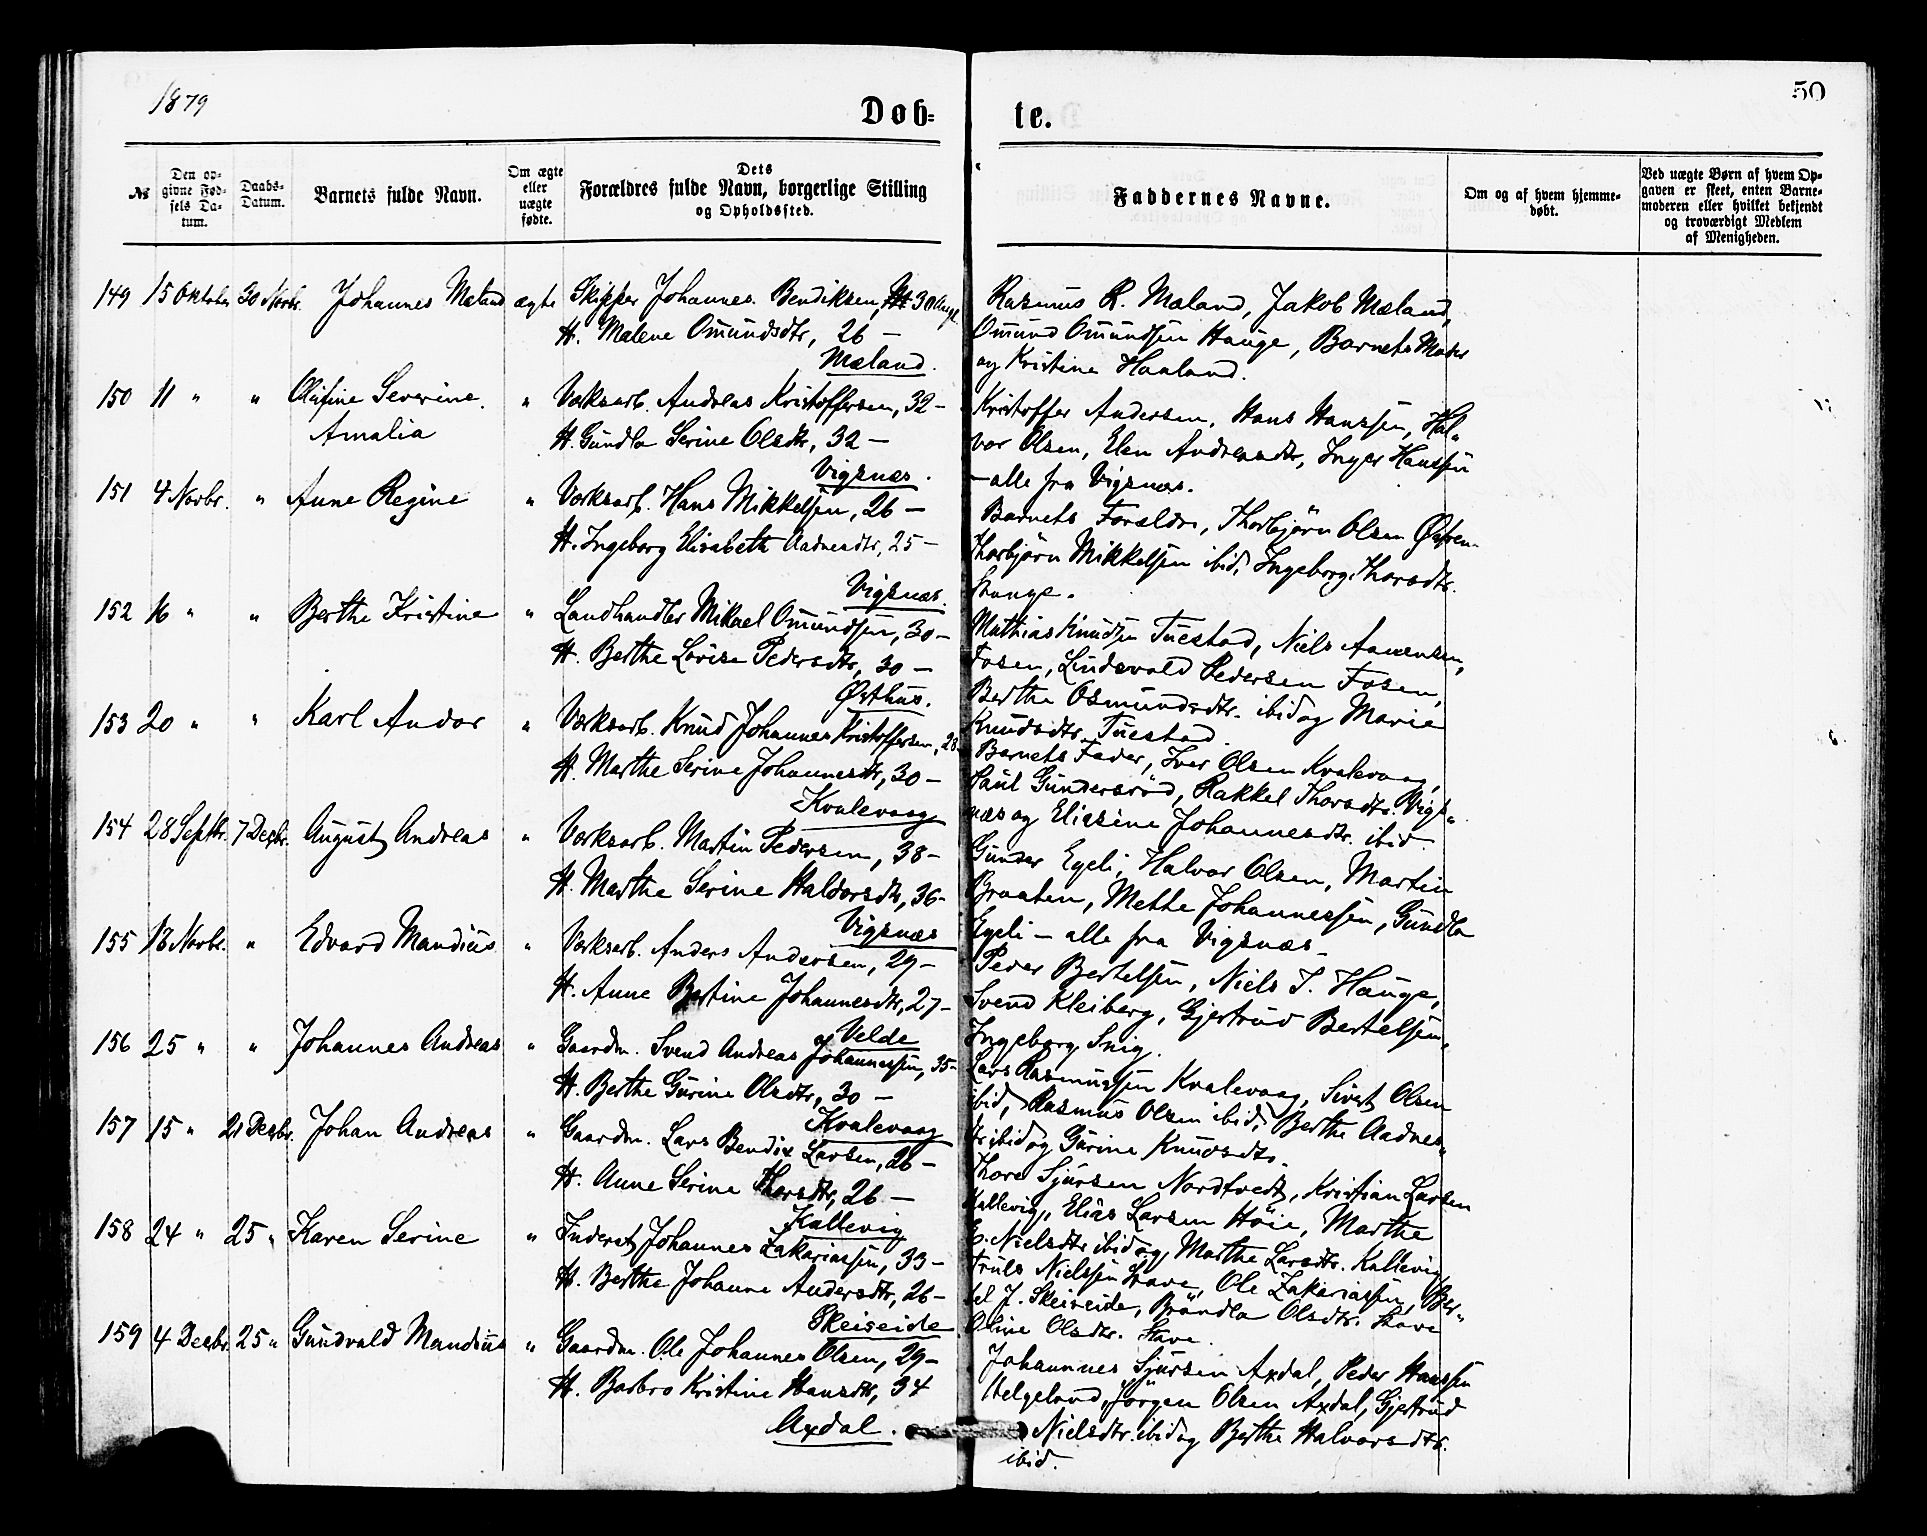 1879
50
Døb-
te.
№
Den op-
givne Fød-
sels Da-
tum.
Daabs-
Datum.
Barnets fulde Navn.
Om ægte
eller
uægte
fødte.
Dets
Forældres fulde Navn, borgerlige Stilling
og Opholdssted.
Faddernes Navne.
Om og af hvem hjemme-
døbt.
Ved uægte Børn af hvem Op-
gaven er skeet, enten Barne-
moderen eller hvilket bekjendt
og troværdigt Medlem
af Menigheden.
149 15 Oktober 30 Novbr. Johannes Mæland ægte Skipper Johannes Bendiksen, 30 Aar gl.
H. Malene Omundsdtr, 26 —
Mæland.
Rasmus R. Mæland, Jakob Mæland,
Omund Omundsen Hauge, Barnets Moder
og Kristine Haaland.
150 11 " " Olufine Severine " Værksarb. Andreas Kristoffersen, 32 —
Amalia H. Gundla Serine Olsdtr, 32 —
Vigsnæs.
Kristoffer Andersen, Hans Hanssen, Hal-
vor Olsen, Elen Andreasdtr, Inger Hanssen
— alle fra Vigsnæs.
151 4 Novbr. " Anne Regine " Værksarb. Hans Mikkelsen, 26 —
H. Ingeborg Elisabeth Aadnesdtr, 25 —
Vigsnæs.
Barnets Forældre, Thorbjørn Olsen
Thorbjørn Mikkelsen ibid, Ingeborg Thorsdtr.
152 16 " " Berthe Kristine " Landhandler Mikael Omundsen, 30 —
H. Berthe Lovise Pedersdtr, 30 —
Østhus.
Mathias Knudsen Tuestad, Niels Aanensen,
Fosen, Lindsvald Pedersen Fosen,
Berthe Osmundsdtr. ibid og Marie
Knudsdtr. Tuestad.
153 20 " " Karl Andor " Værksarb. Knud Johannes Kristoffersen, 28
H. Marthe Serine Johannesdtr, 30 —
Kvalevaag
Barnets Fader, Iver Olsen Kvalevaag,
Paul Gundersrød, Rakkel Thorsdtr. Vigs-
næs og Eliesine Johannesdtr. ibid
154 28 Septbr. 7 Decbr. August Andreas " Værksarb. Martin Pedersen, 38 —
H. Marthe Serine Haldorsdtr, 36 —
Vigsnæs
Gunder Egeli, Halvor Olsen, Martin
Braaten, Mette Johannessen, Gundla
Egeli — alle fra Vigsnæs —
155 18 Novbr. " Edvard Mandius " Værksarb. Anders Andersen, 29 —
H. Anne Bertine Johannesdtr, 27 —
Velde
Peder Bertelsen, Niels T. Hauge,
Svend Kleiberg, Gjertrud Bertelsen,
Ingeborg Snig.
156 25 " " Johannes Andreas " Gaardm. Svend Andreas Johannessen, 35 —
H. Berthe Gurine Olsdtr, 30 —
Kvalevaag
Lars Rasmussen Kvalevaag, Sivert Olsen
ibid, Rasmus Olsen ibid, Berthe Aadnes-
dtr ibid og Gurine Knudsdtr.
157 15 " 21 Decbr. Johan Andreas " Gaardm. Lars Bendix Larsen, 26 —
H. Anne Serine Thorsdtr, 26 —
Kallevig
Thore Sjursen Nordtvedt, Kristian Larsen
Kallevig, Elias Larsen Høie, Marthe
E. Nielsdtr ibid og Marthe Larsdtr. Kallevig
158 24 " 25 " Karen Serine " Inderst Johannes Zakariassen, 33 —
H. Berthe Johanne Andersdtr, 26 —
Skeiseide
Truls Nielssen Stave, Ole Zakariassen, Ber-
tel J. Skeiseide, Brøndla Olsdtr. Stave
Oline Olsdtr. Stave.
159 4 Decbr. 25 " Gundvald Mandius " Gaardm. Ole Johannes Olsen, 29 —
H. Barbro Kristine Hansdtr, 34
Axdal.
Johannes Sjursen Axdal, Peder Hanssen
Helgeland, Jørgen Olsen Axdal, Gjertrud
Nielsdtr. ibid og Berthe Halvorsdtr.
ibid.